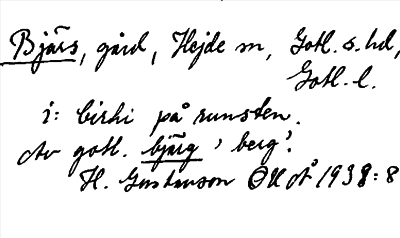 Bjärs, gård, Hejde sn, Gotl. s. hd,
Gotl. l.
i: birhi på runsten.
Av gotl. bjärg 'berg'.
H. Gustavson ÖU
1938: 8